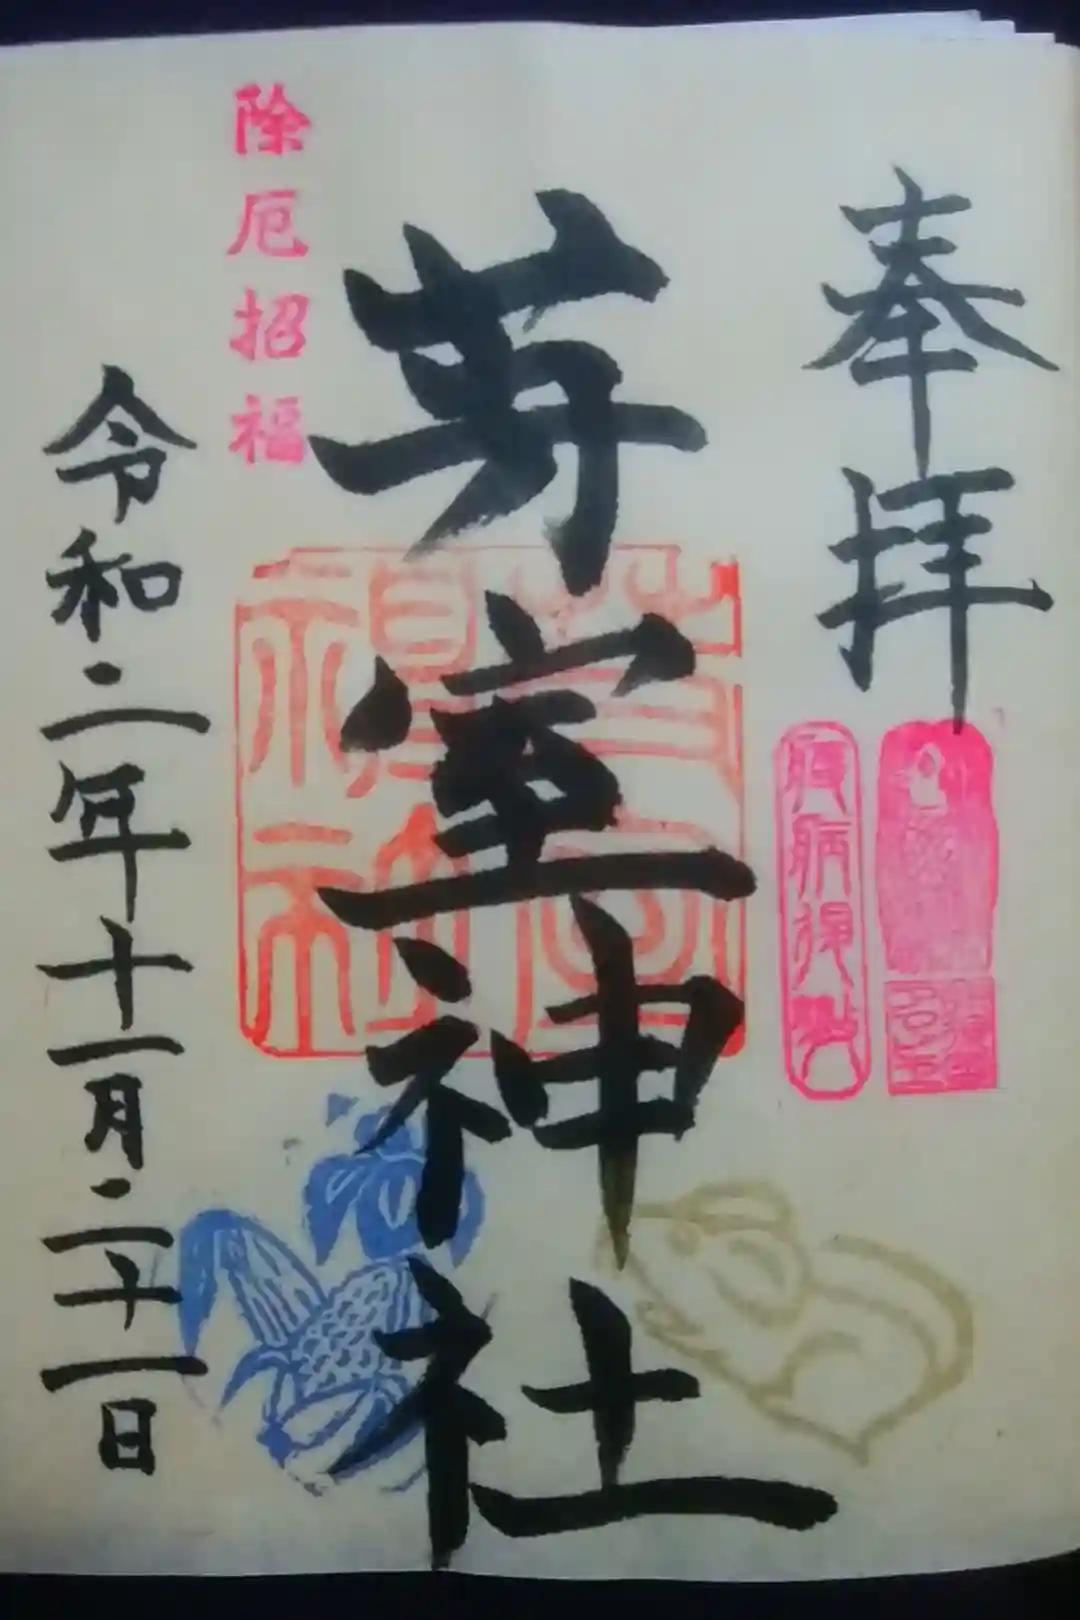 奉拝
疫病退散
芽室神社
除厄招福
令和二年十一月二十一日